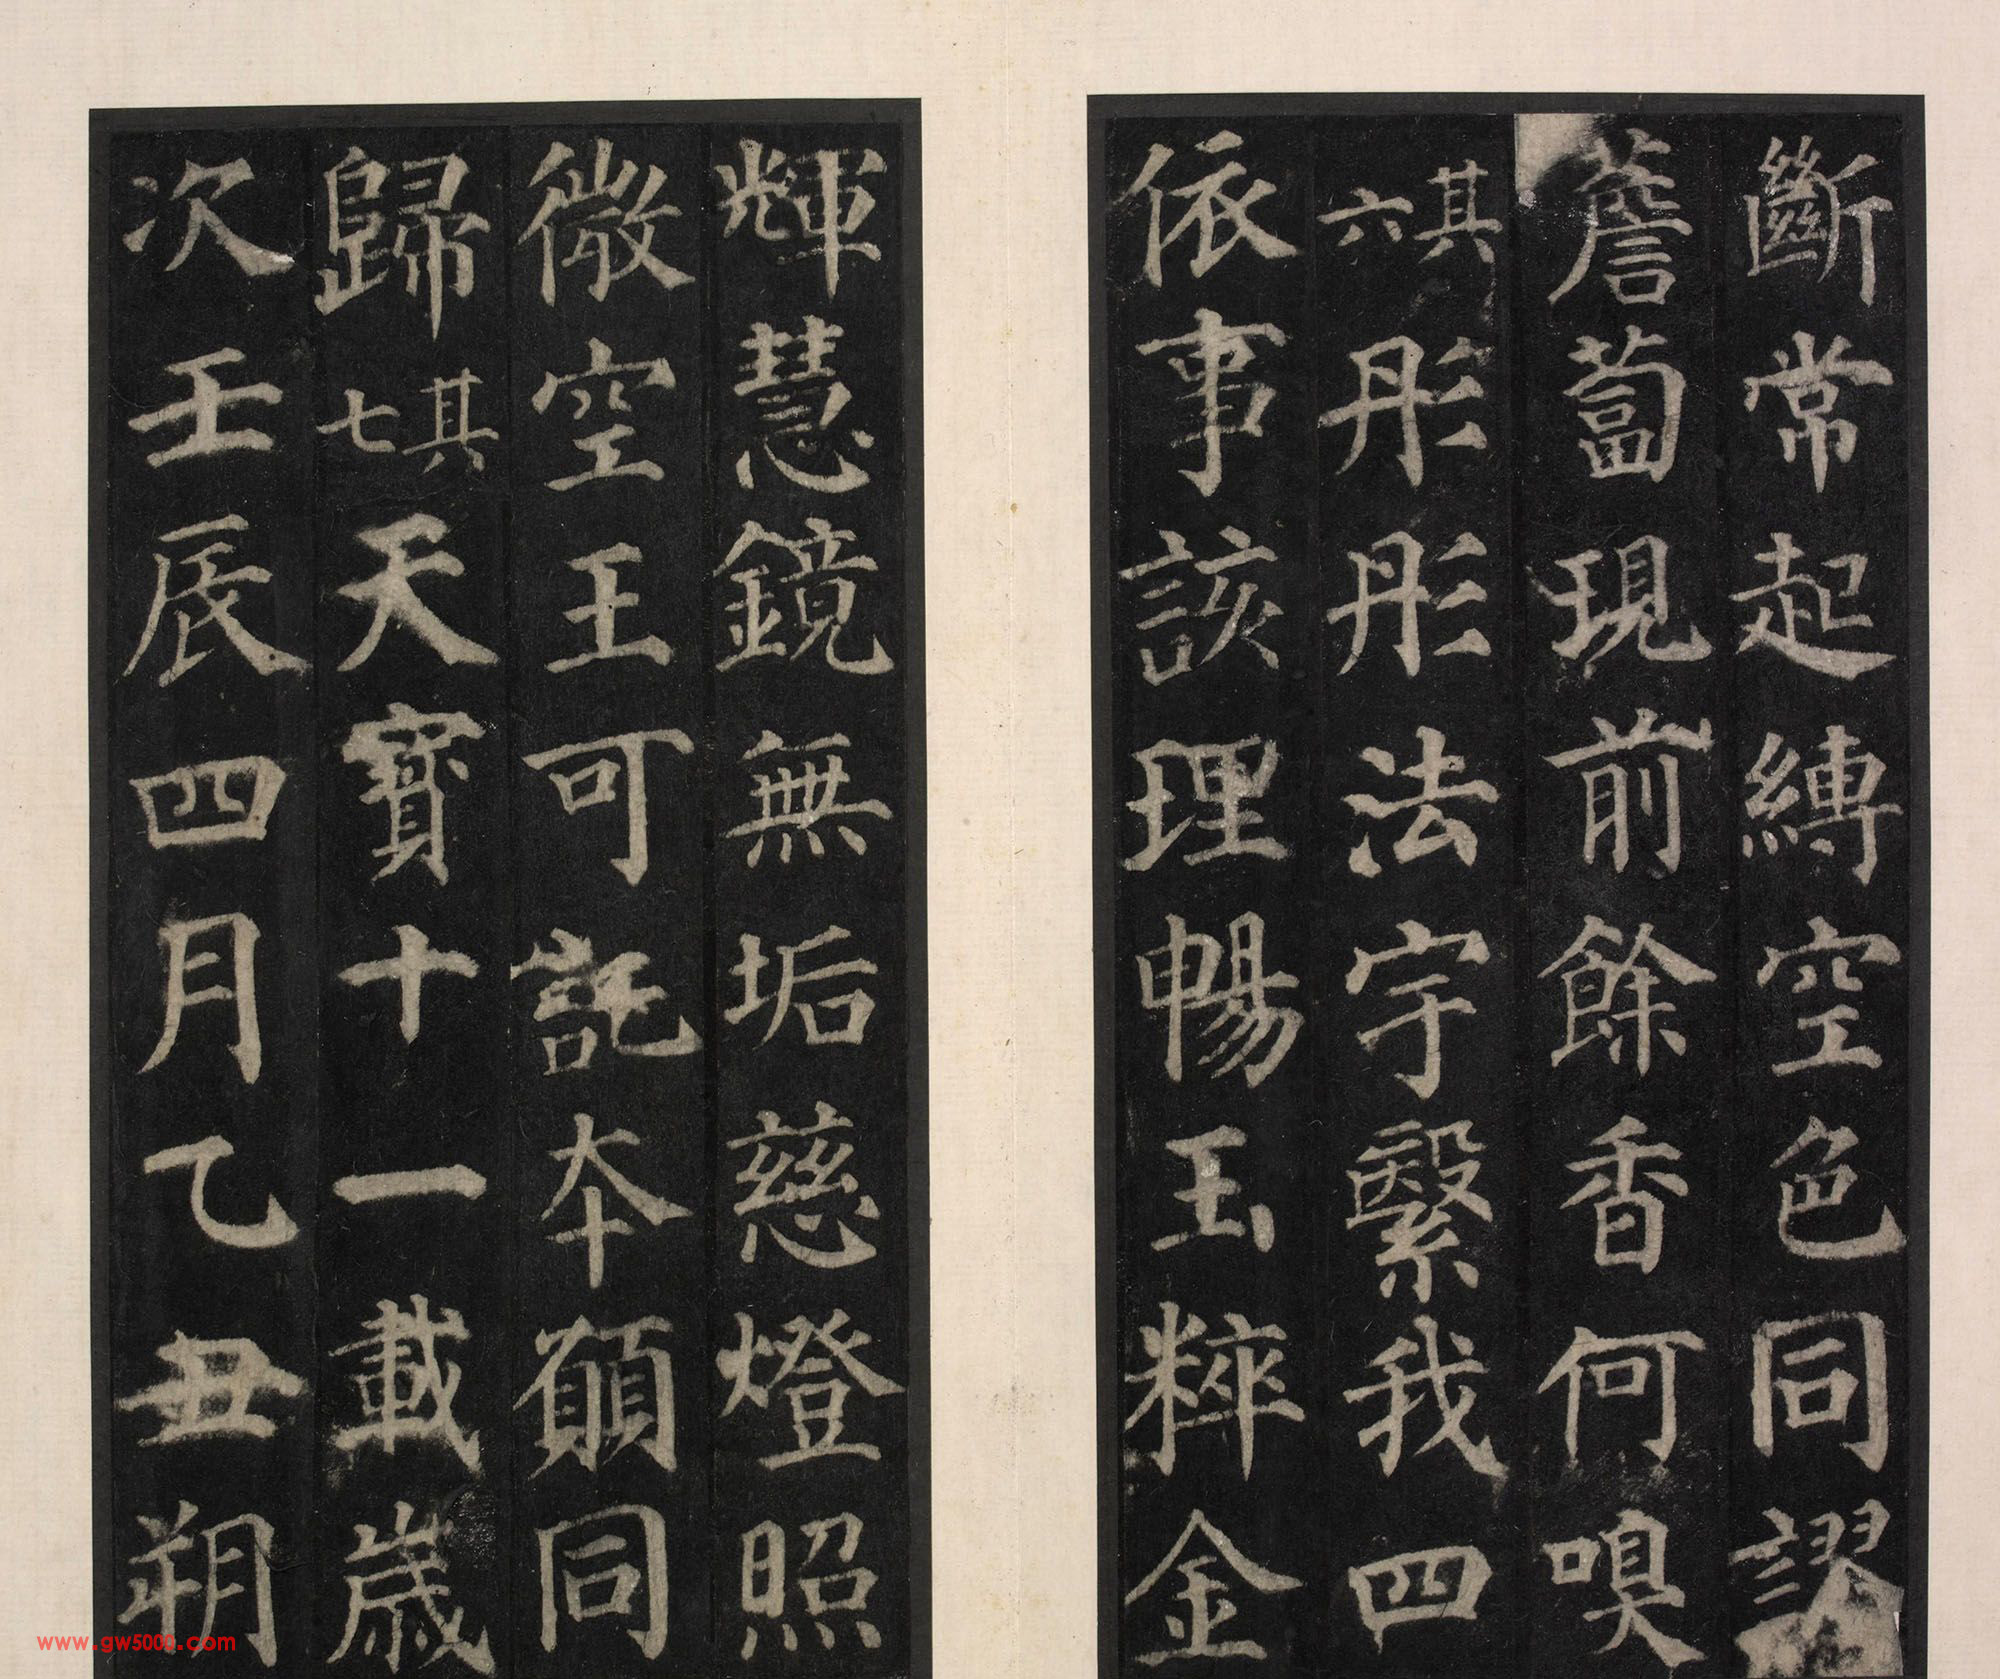 斷常起縛空色同謬
薝蔔現前餘香何嗅
其六彤彤法宇繄我四
依事該理暢玉粹金
輝慧鏡無垢慈燈照
微空王可託本願同
歸其七天寶十一載歲
次壬辰四月乙丑朔
www.gw5000.com